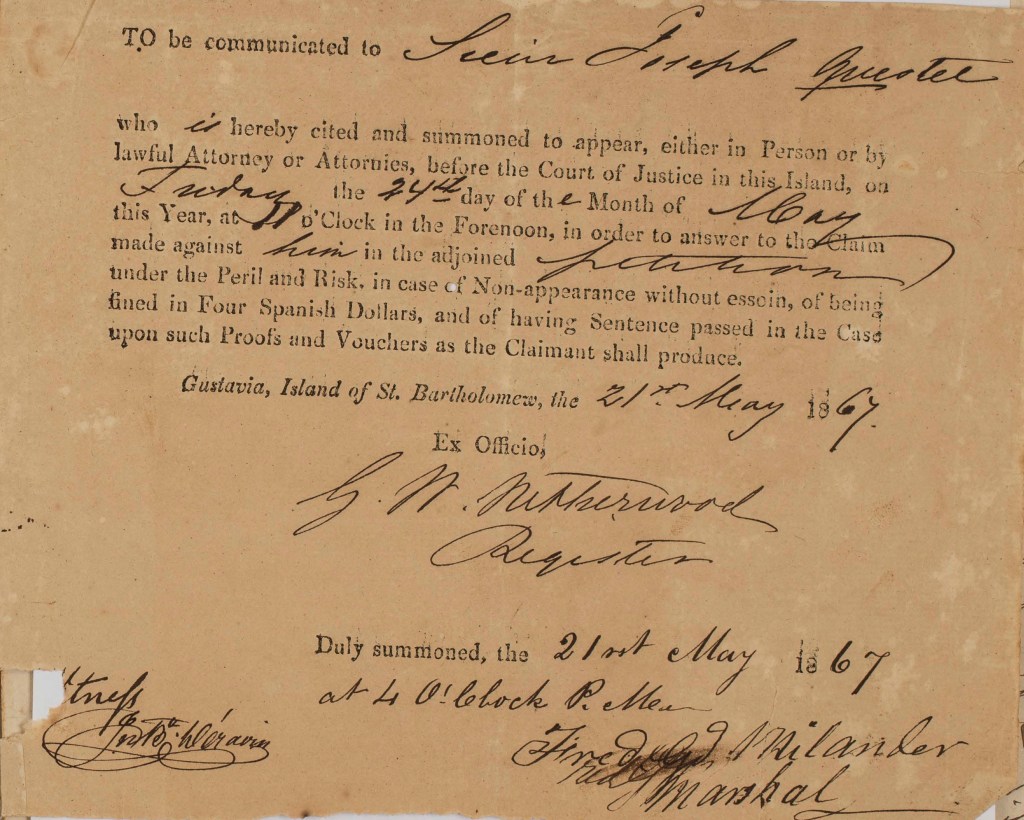 TO be communicated to Sieur Joseph Questel
who is hereby cited and summoned to appear, either in Person or by
lawful Attorney or Attornies, before the Court of Justice in this Island, on
Friday the 24th day of the Month of May
this Year, at 11 o'Clock in the Forenoon, in order to answer to the Claim
made against him in the adjoined petition
under the Peril and Risk, in case of Non-appearance without essoin, of being
fined in Four Spanish Dollars, and of having Sentence passed in the Case
upon such Proofs and Vouchers as the Claimant shall produce.
Gustavia, Island of St. Bartholomew, the 21st May 1867.
Ex Officio,
G. W. Netherwood
Register
Duly summoned, the 21rst May 1867
at 4 O'Clock P. M
tness
Fred Ad. Milander
Marshal